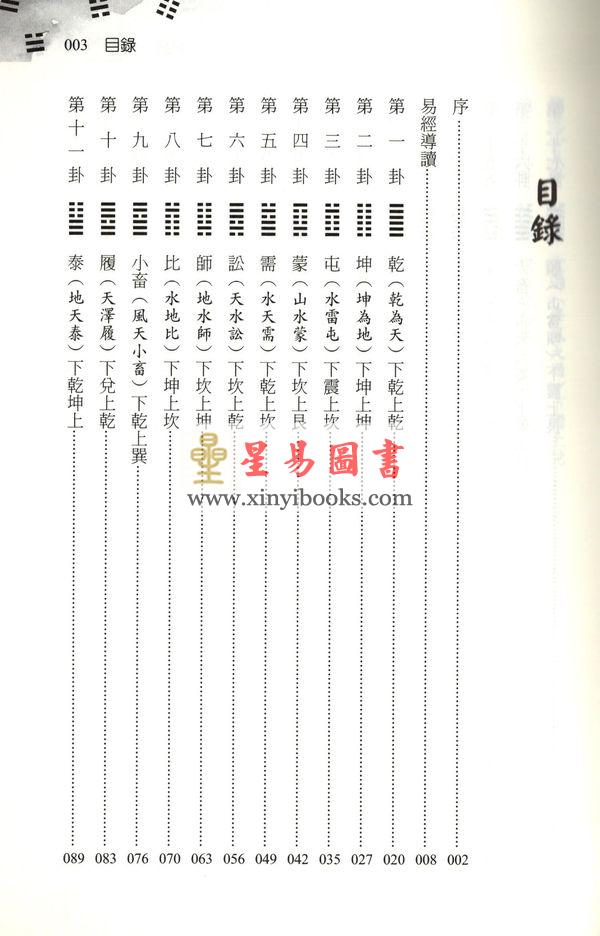 003 目錄
目錄
序 002
易經導讀 008
第一卦 ䷀ 乾（乾為天）下乾上乾 020
第二卦 ䷁ 坤（坤為地）下坤上坤 027
第三卦 ䷂ 屯（水雷屯）下震上坎 035
第四卦 ䷃ 蒙（山水蒙）下坎上艮 042
第五卦 ䷄ 需（水天需）下乾上坎 049
第六卦 ䷅ 訟（天水訟）下坎上乾 056
第七卦 ䷆ 師（地水師）下坎上坤 063
第八卦 ䷇ 比（水地比）下坤上坎 070
第九卦 ䷈ 小畜（風天小畜）下乾上巽 076
第十卦 ䷉ 履（天澤履）下兌上乾 083
第十一卦 ䷊ 泰（地天泰）下乾坤上 089
星易圖書
www.xinyibooks.com